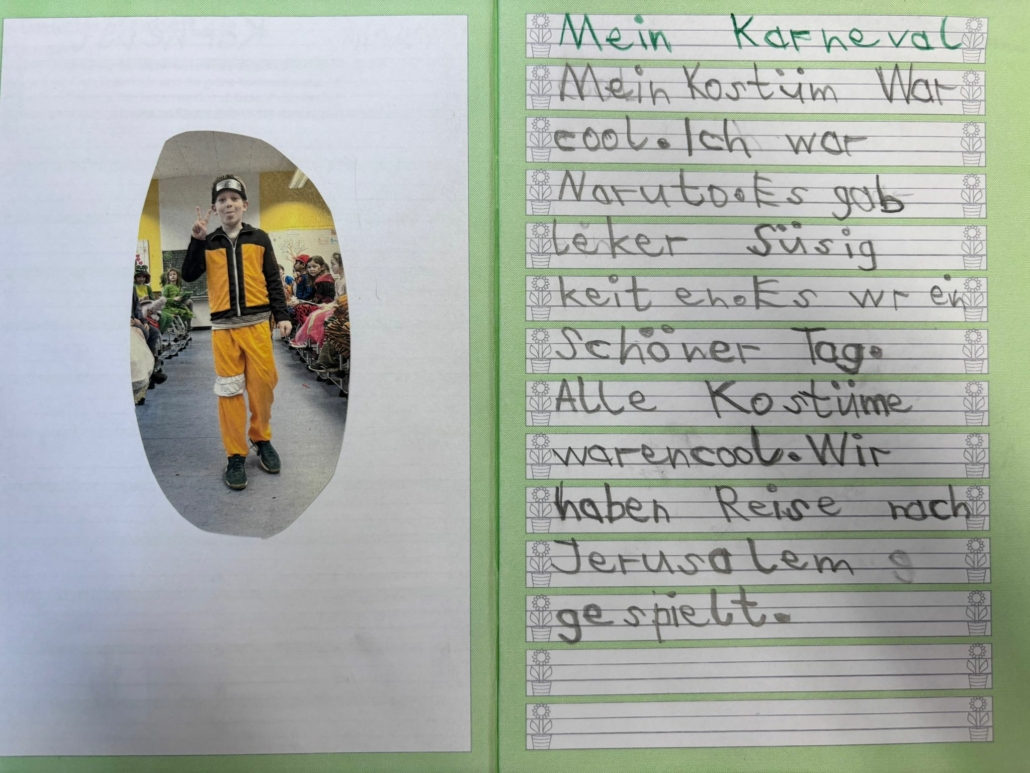 Mein Karneval
Mein Kostüm War
cool. Ich war
Naruto. Es gab
leker Süsig
keit en. Es wr ein
Schöner Tag.
Alle Kostüme
warencool. Wir
haben Reise nach
Jerusalem g
gespielt.